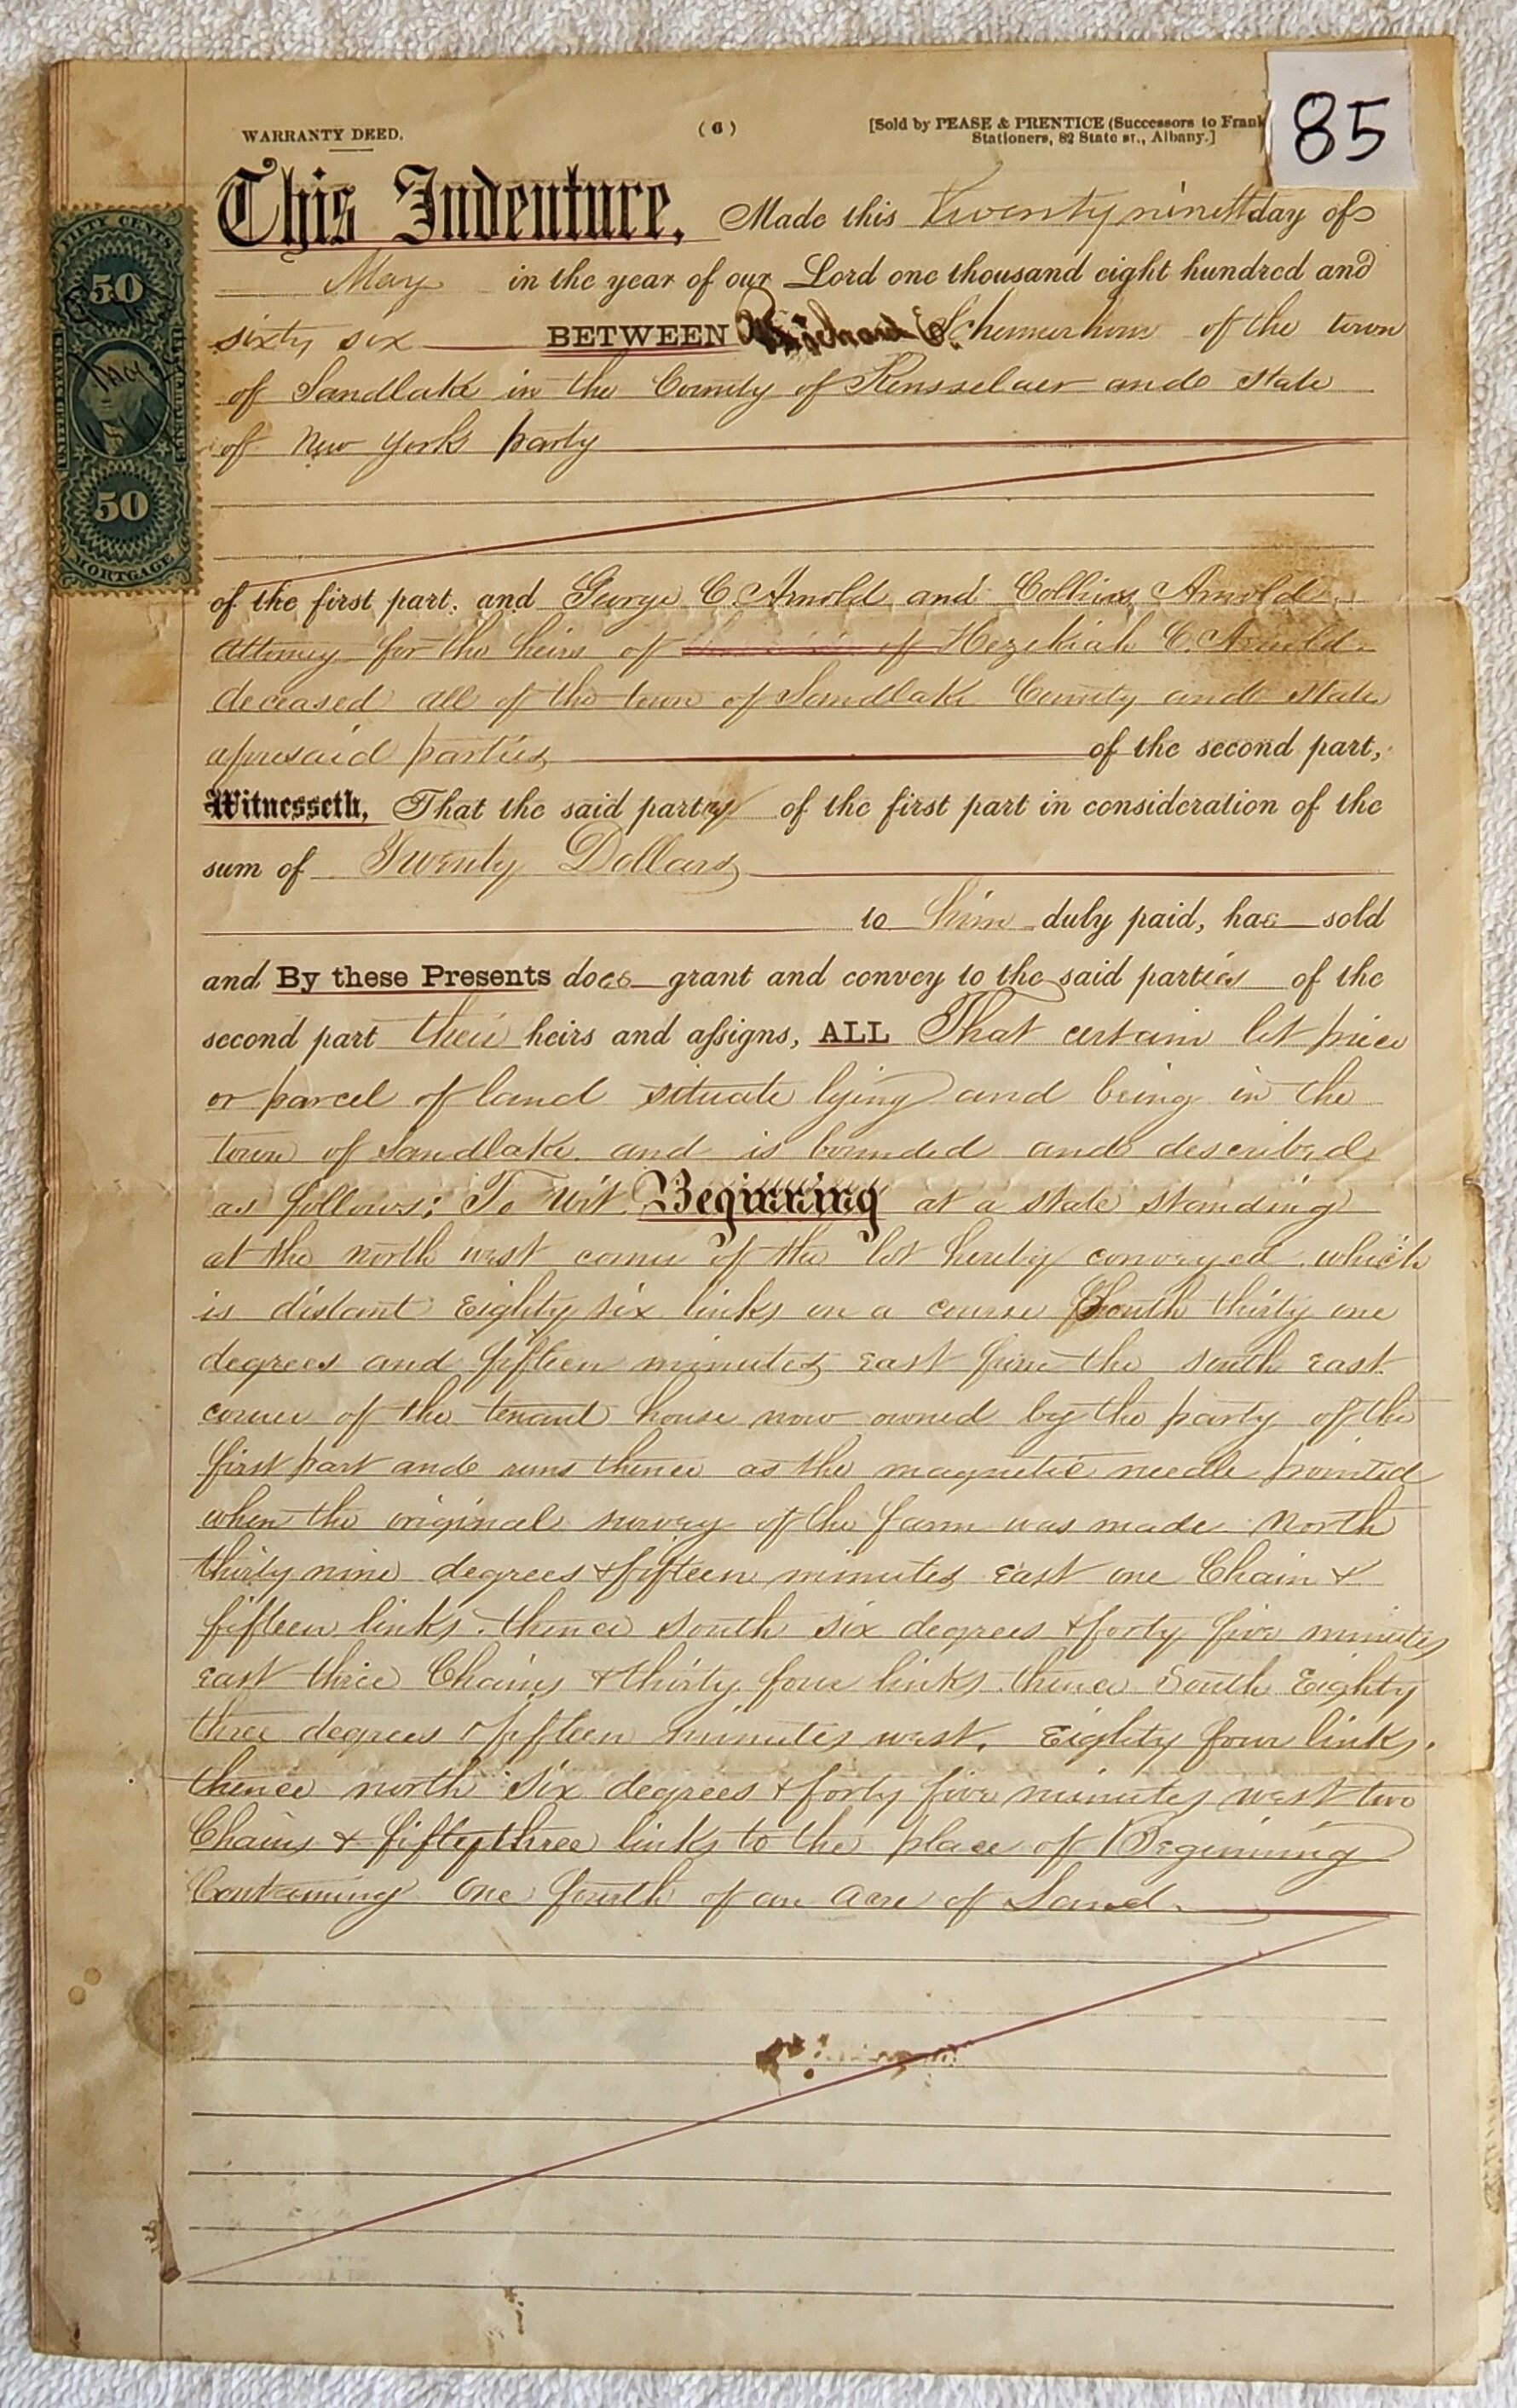 85
WARRANTY DEED.
( 6 )
[Sold by PEASE & PRENTICE (Successors to Frank
Stationers, 82 State st., Albany.]
FIFTY CENTS
50
UNITED STATES
INTER. REVENUE
50
MORTGAGE
This Indenture, Made this Twenty ninth day of
May in the year of our Lord one thousand eight hundred and
sixty six BETWEEN Richard C. Schermerhorn of the town
of Sandlake in the County of Rensselaer and State
of New York party
of the first part, and George C. Arnold and Collins Arnold
Attorney for the heirs of of Hezekiah C. Arnold
deceased all of the town of Sandlake County and State
aforesaid parties of the second part,
Witnesseth, That the said party of the first part in consideration of the
sum of Twenty Dollars
to him duly paid, has sold
and By these Presents does grant and convey to the said parties of the
second part their heirs and assigns, ALL That certain lot piece
or parcel of land situate lying and being in the
town of Sandlake and is bounded and described
as follows; To Wit Beginning at a stake standing
at the north west corner of the lot hereby conveyed which
is distant Eighty six links on a course South thirty one
degrees and fifteen minutes east from the south east
corner of the tenant house now owned by the party of the
first part and runs thence as the magnetic needle pointed
when the original survey of the farm was made North
thirty nine degrees & fifteen minutes East one Chain &
fifteen links. thence South six degrees & forty five minutes
East three Chains & thirty four links thence South Eighty
three degrees & fifteen minutes west. Eighty four links.
thence north six degrees & forty five minutes west two
Chains & fifty three links to the place of Beginning
Containing One fourth of an Acre of Land.